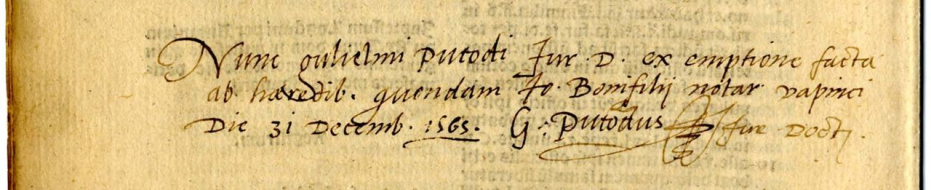 Nunc gulielmi Putodi Jur. D. ex emptione facta
ab hæredib. quendam Jo. Bonifilij notar vapinci
Die 31 Decemb. 1565. G. Putodus Jur Docti.